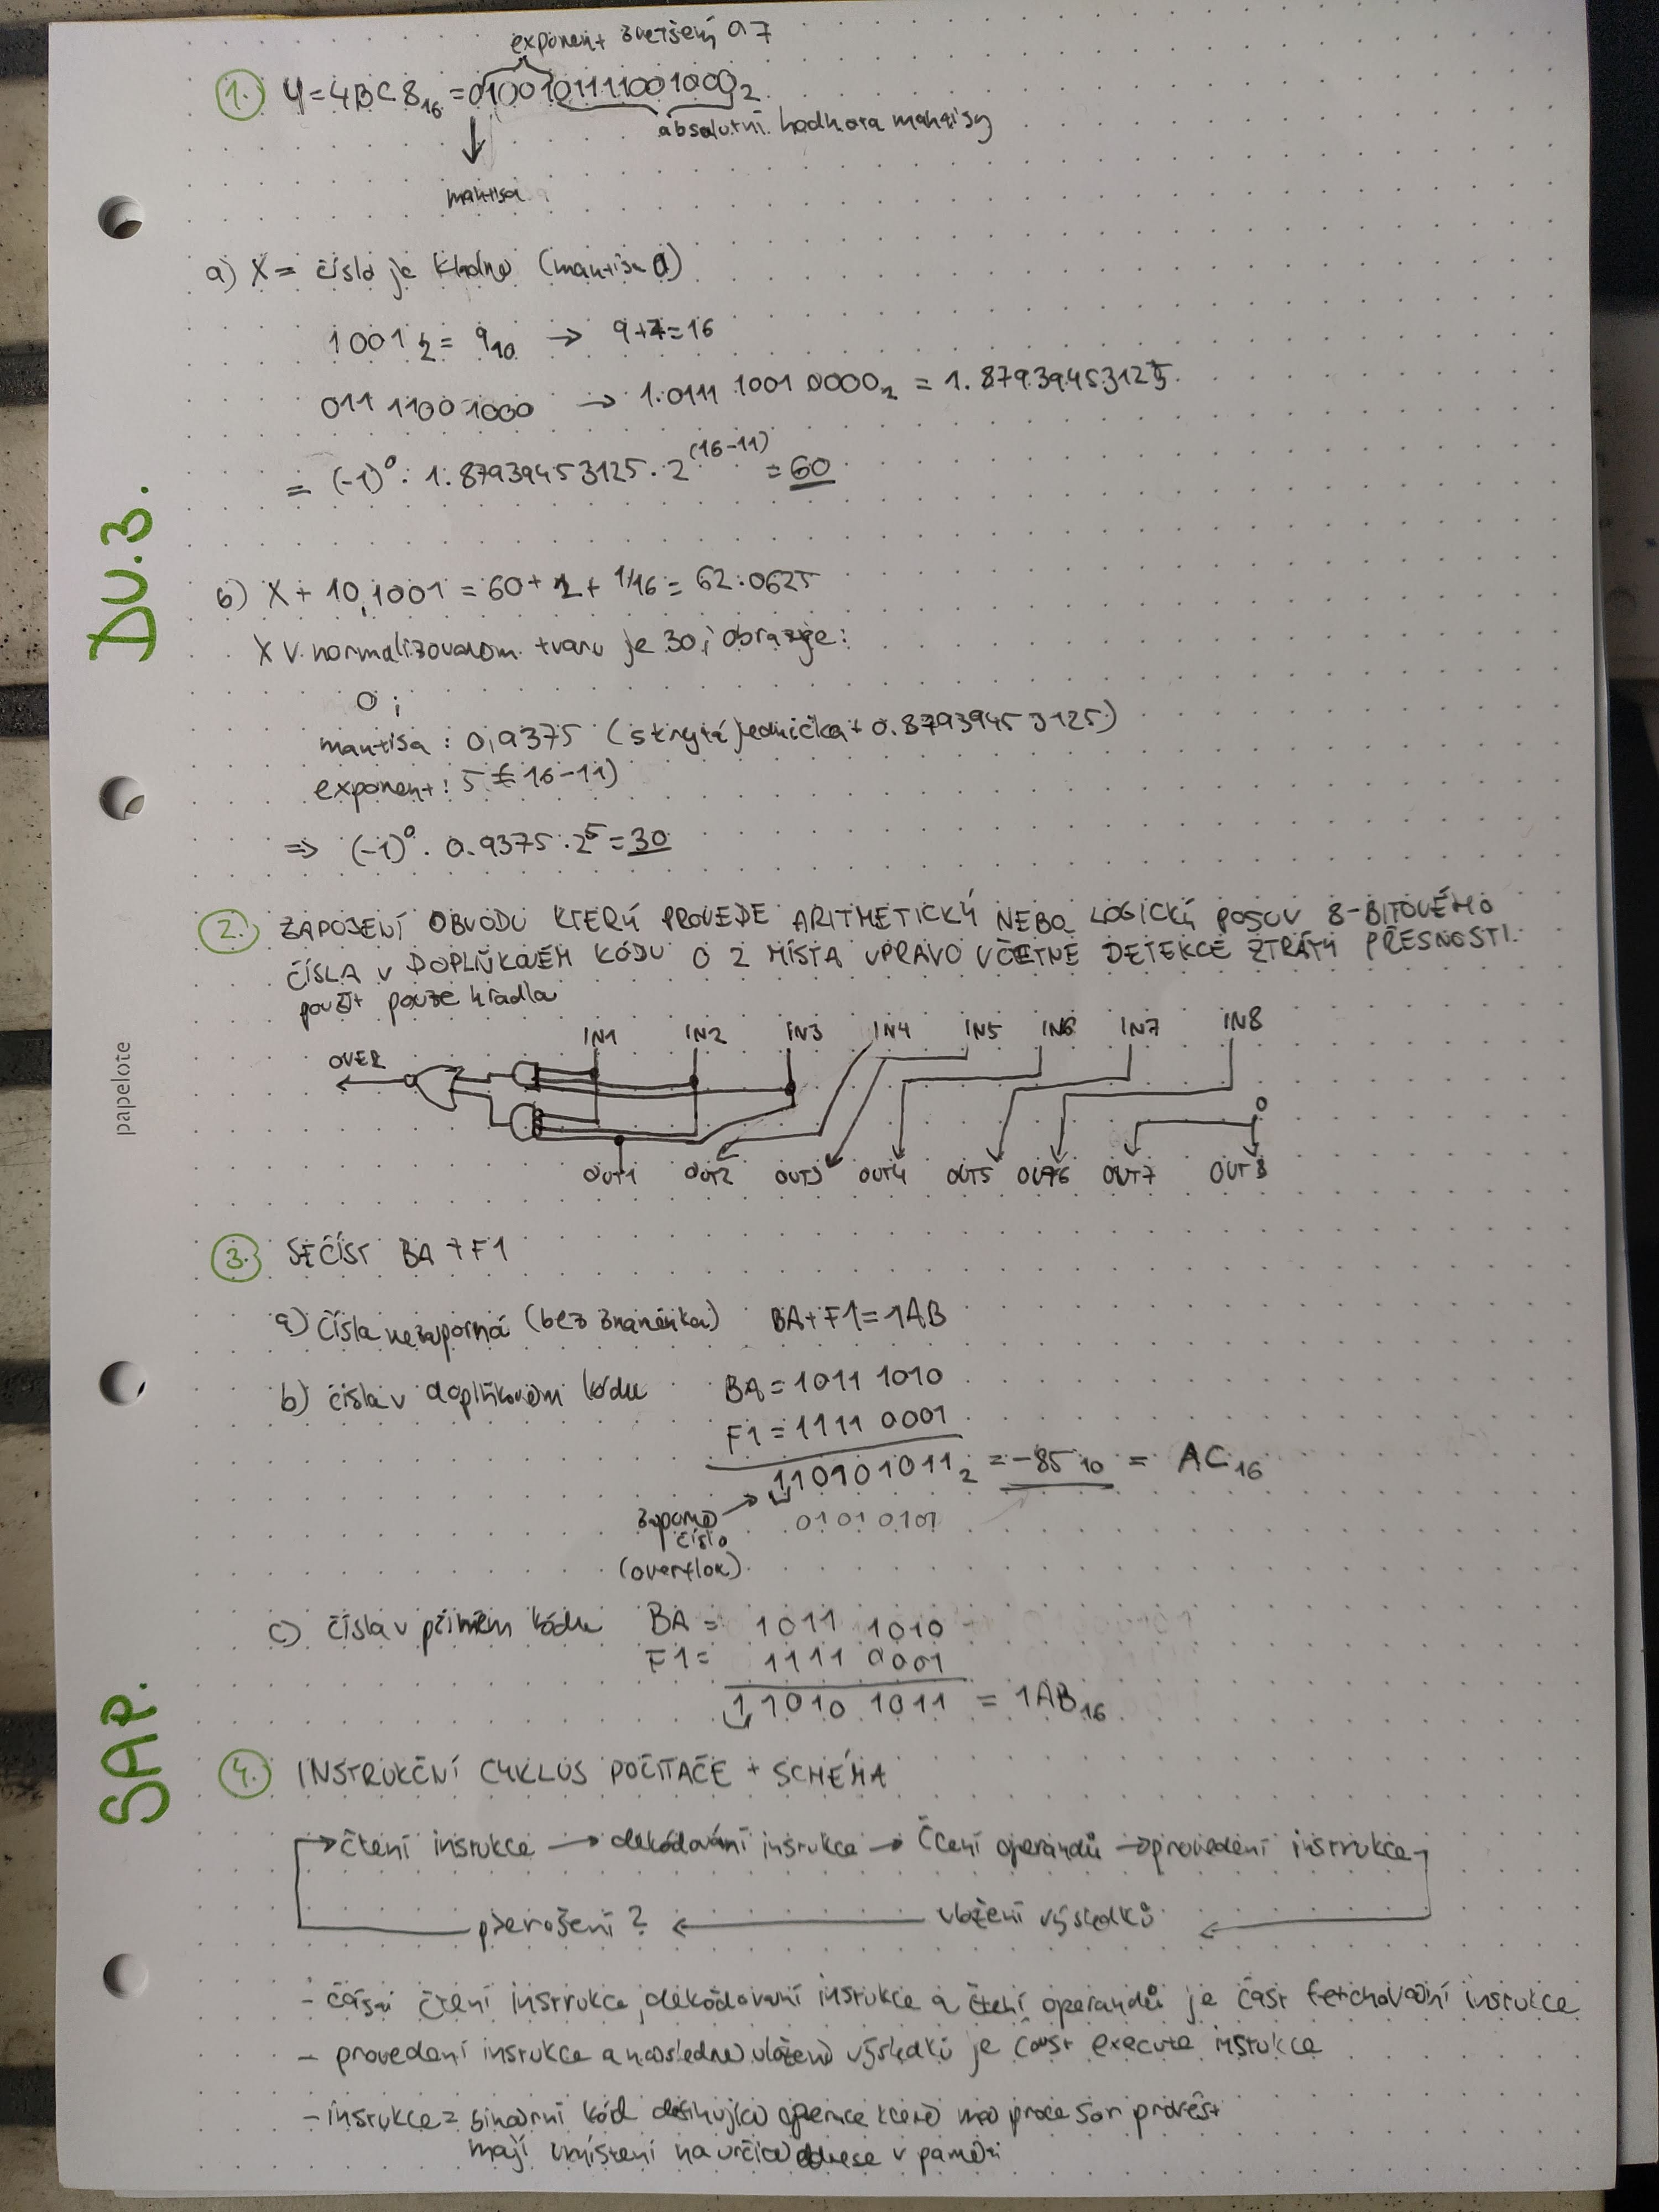 exponent zvětšený o 7
1. Y=4BC8₁₆ = 0100101111001000₂
absolutní hodnota mantisy
mantisa
a) X = číslo je kladné (mantisa 0)
1001₂ = 9₁₀ → 9+7=16
011 1100 1000 → 1.0111 1001 0000₂ = 1.87939453125
= (-1)⁰ · 1.87939453125 · 2^(16-11) = 60
b) X + 10,1001 = 60 + 2 + 1/16 = 62.0625
X v normalizovaném tvaru je 30, obrazuje:
0 ;
mantisa : 0,9375 (skrytá jednička + 0.87939453125)
exponent : 5 (= 16-11)
=> (-1)⁰ · 0.9375 · 2⁵ = 30
DU.3.
2. ZAPOJENÍ OBVODU KTERÝ PROVEDE ARITMETICKÝ NEBO LOGICKÝ POSUV 8-BITOVÉHO
ČÍSLA V DOPLŇKOVÉM KÓDU O 2 MÍSTA VPRAVO VČETNĚ DETEKCE ZTRÁTY PŘESNOSTI.
použít pouze hradla
IN1 IN2 IN3 IN4 IN5 IN6 IN7 IN8
OVER
0
OUT1 OUT2 OUT3 OUT4 OUT5 OUT6 OUT7 OUT8
papelote
3. SEČÍST BA + F1
a) čísla nezáporná (bez znaménka) BA+F1=1AB
b) čísla v doplňkovém kódu BA = 1011 1010
F1 = 1111 0001
110101011₂ = -85₁₀ = AC₁₆
záporné → 01010101
číslo
(overflow)
c) čísla v přímém kódu BA = 1011 1010
F1 = 1111 0001
1 1010 1011 = 1AB₁₆
SAP.
4. INSTRUKČNÍ CYKLUS POČÍTAČE + SCHÉMA
→ čtení instrukce → dekódování instrukce → čtení operandů → provedení instrukce
přerušení ? ← uložení výsledků ←
- části čtení instrukce, dekódovaní instrukce a čtení operandů je část fetchovaní instrukce
- provedení instrukce a následné uložení výsledků je část execute instukce
- instrukce = binární kód definující operace které má procesor provést
mají umístení na určité adrese v paměti